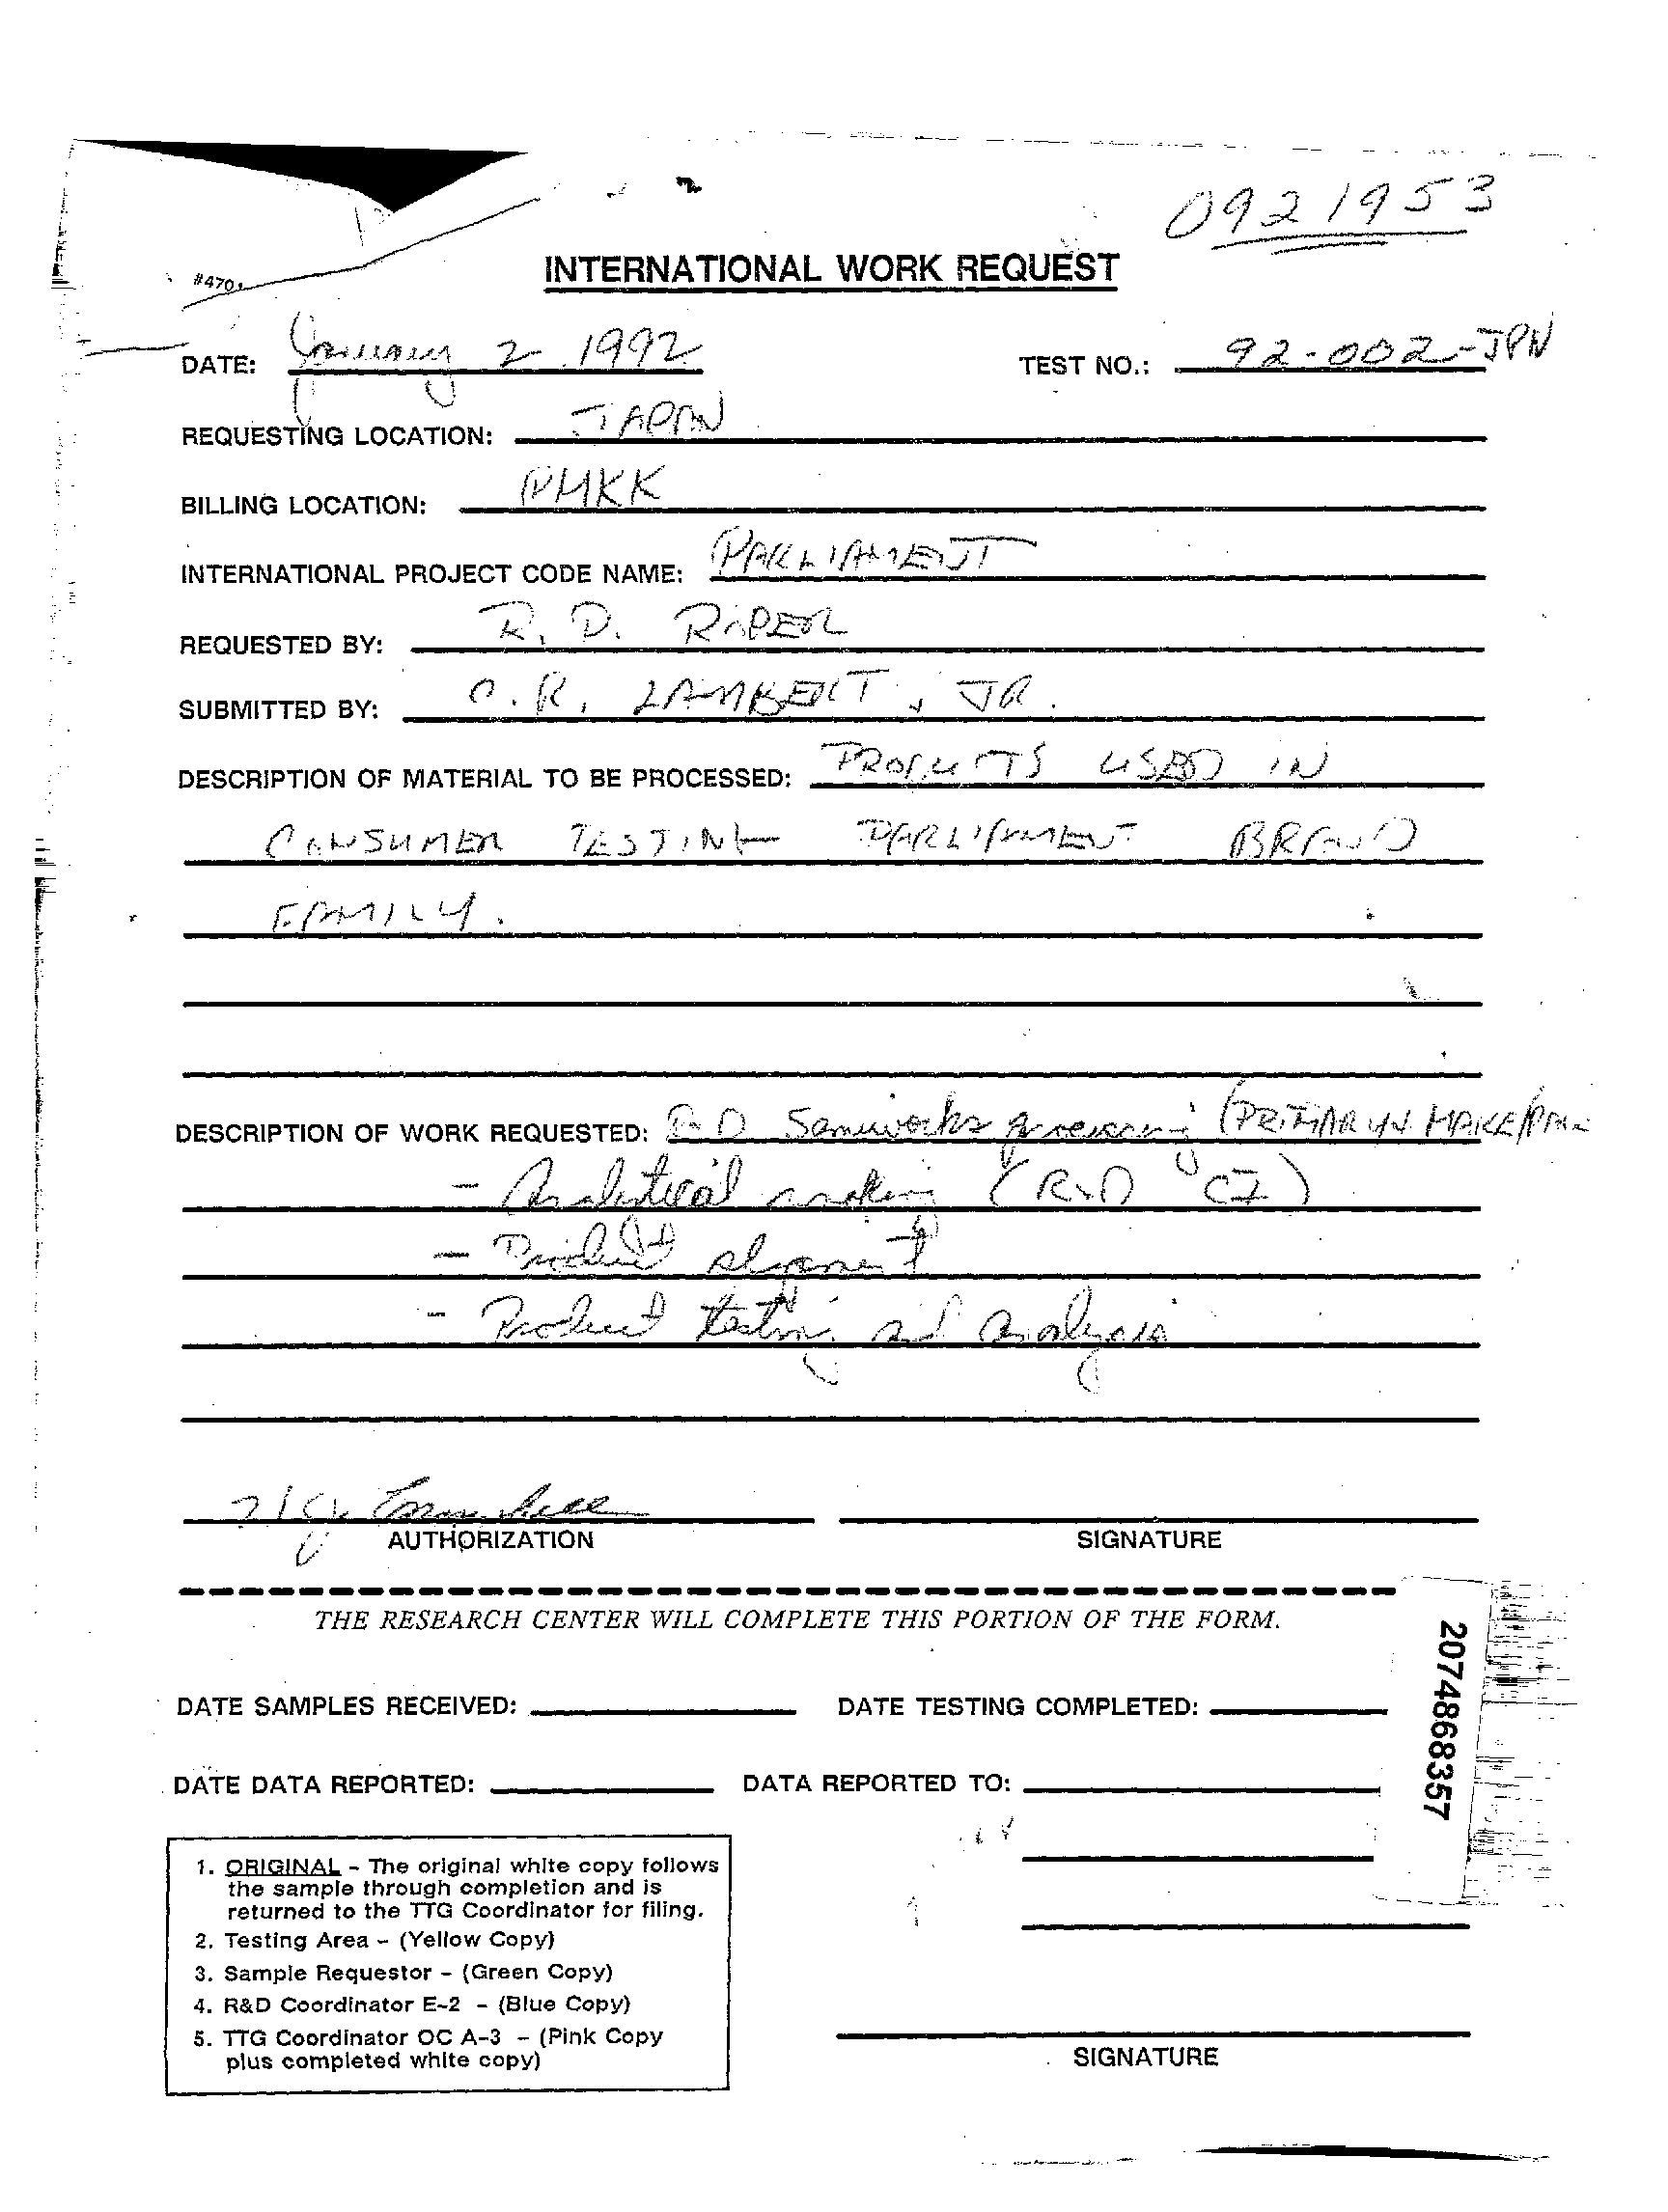 0921953
INTERNATIONAL WORK REQUEST
#470
DATE: January 2 1992 TEST NO.: 92-002-JPN
REQUESTING LOCATION: JAPAN
BILLING LOCATION: PMKK
INTERNATIONAL PROJECT CODE NAME: PARLIAMENT
REQUESTED BY: R. D. RIPER
SUBMITTED BY: C. R. LAMBERT, JR.
DESCRIPTION OF MATERIAL TO BE PROCESSED: PRODUCTS USED IN
CONSUMER TESTING PARLIAMENT BRAND
FAMILY.
DESCRIPTION OF WORK REQUESTED: Semiworks processing (PRIMARY MAKE/
- Analytical smoking (R&D CI)
- Product shipment
- Product testing and analysis
AUTHORIZATION SIGNATURE
THE RESEARCH CENTER WILL COMPLETE THIS PORTION OF THE FORM.
DATE SAMPLES RECEIVED: DATE TESTING COMPLETED:
DATE DATA REPORTED: DATA REPORTED TO:
2074868357
1. ORIGINAL - The original white copy follows
the sample through completion and is
returned to the TTG Coordinator for filing.
2. Testing Area - (Yellow Copy)
3. Sample Requestor - (Green Copy)
4. R&D Coordinator E-2 - (Blue Copy)
5. TTG Coordinator OC A-3 - (Pink Copy
plus completed white copy)
SIGNATURE